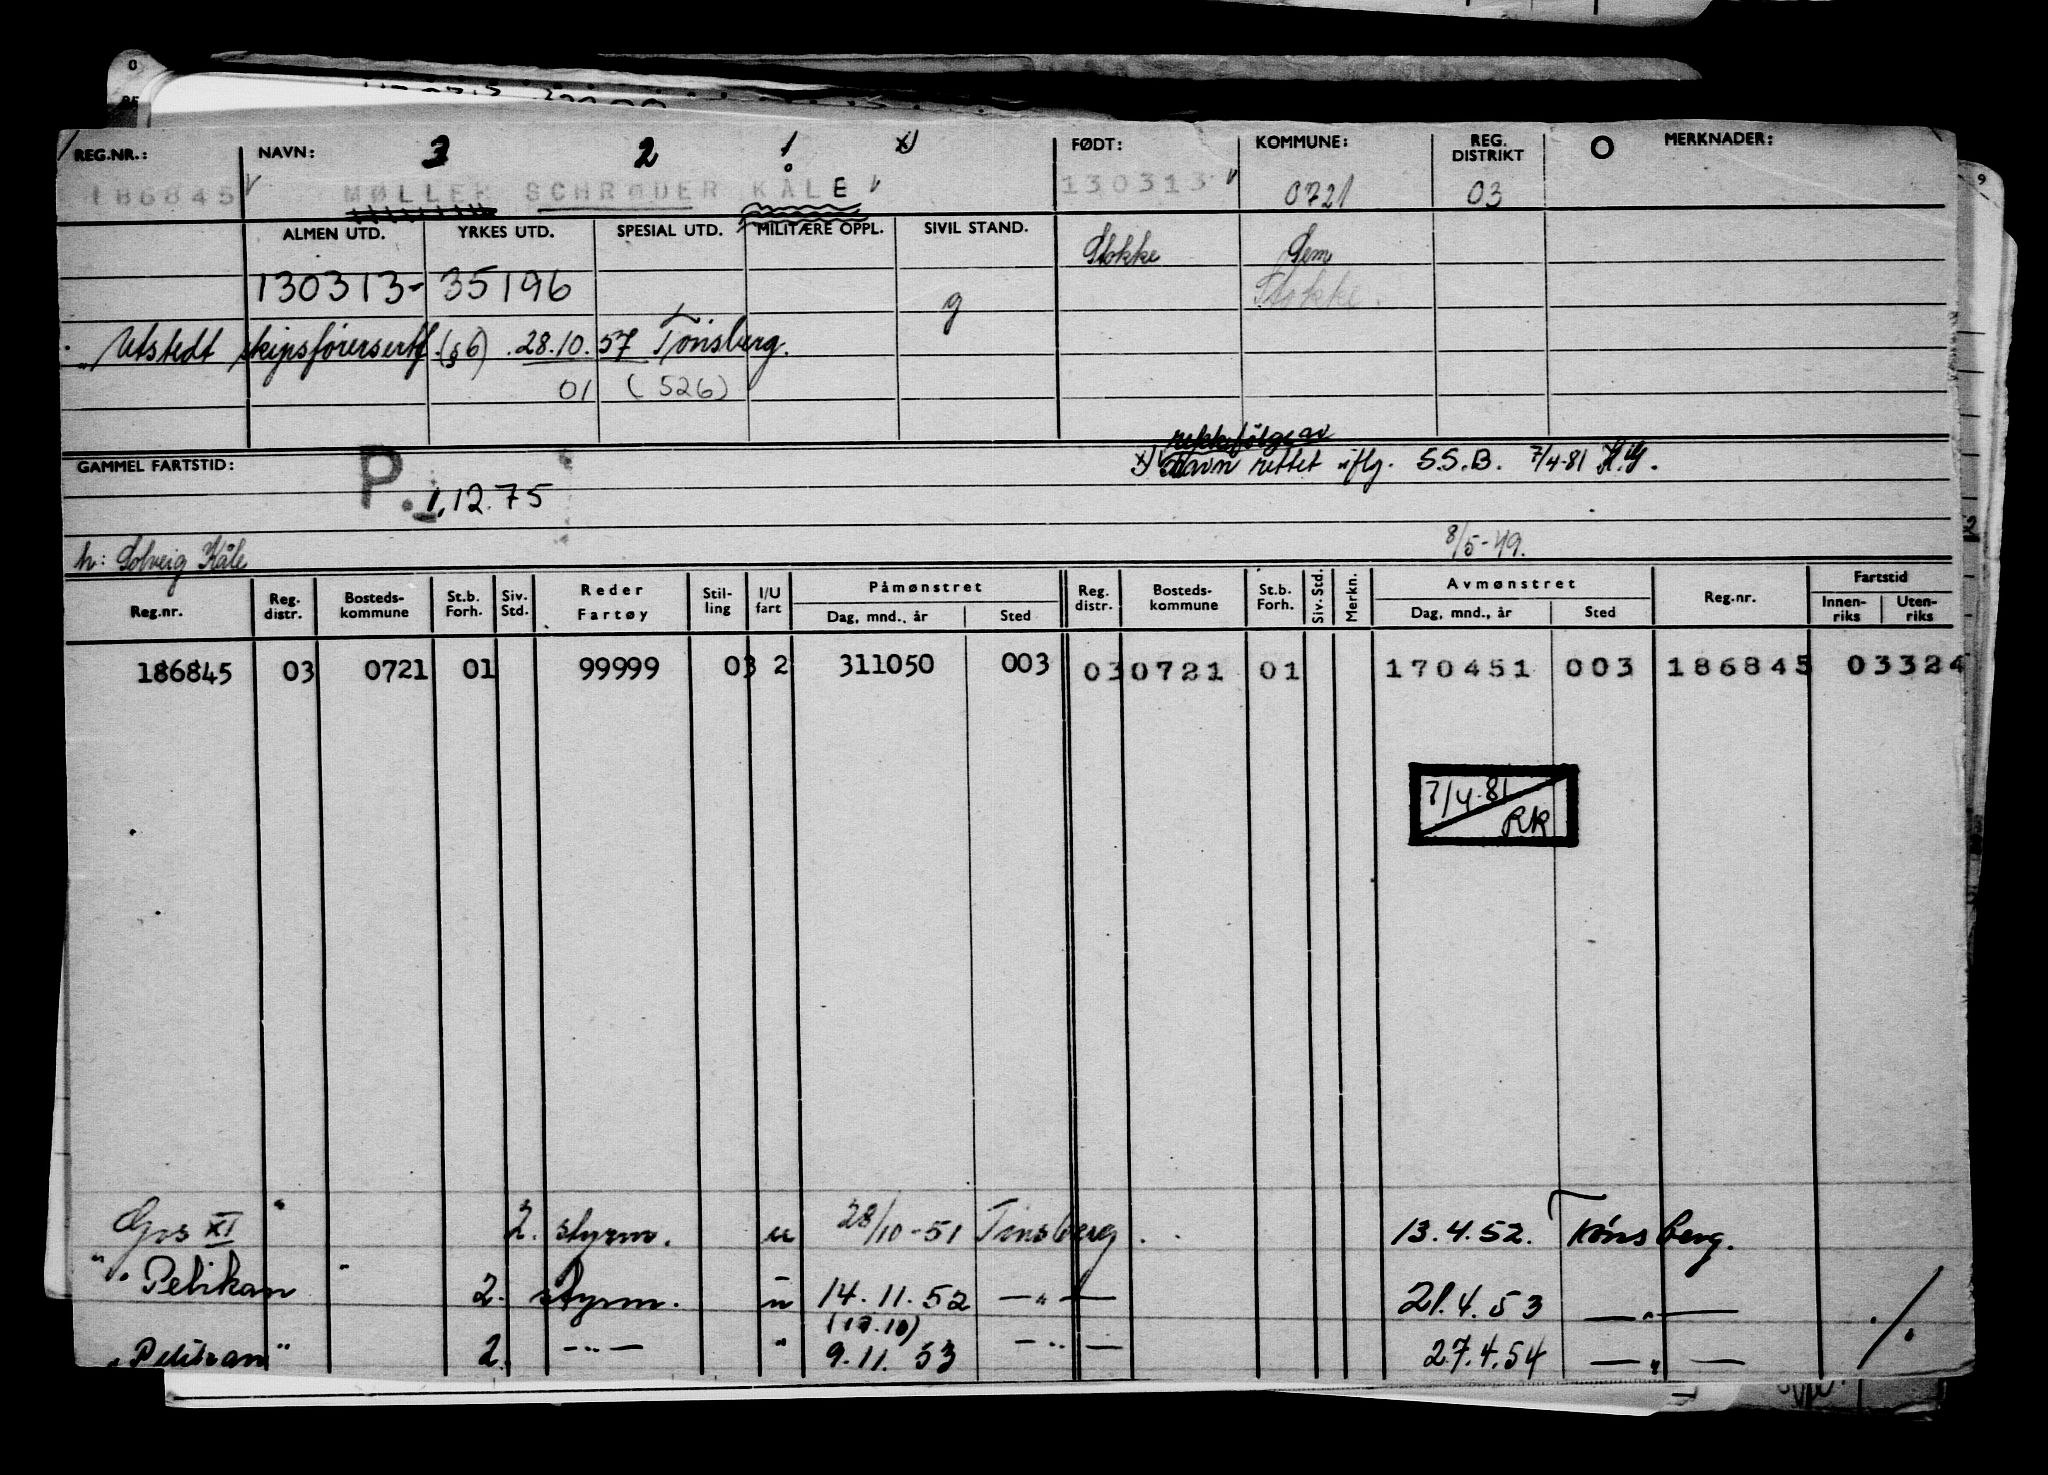 REG.NR.: NAVN: 3 2 1 x) FØDT: KOMMUNE: REG. DISTRIKT MERKNADER:
186845 MØLLER SCHRØDER KÅLE 130313 0721 03
ALMEN UTD. YRKES UTD. SPESIAL UTD. MILITÆRE OPPL. SIVIL STAND. Stokke Sem
130313- 35196 g Stokke.
Utstedt skipsførersertf. (§6) .28.10.57 Tönsberg.
01 (526)
rekkefølge av
GAMMEL FARTSTID: P. x) Navn rettet iflg. S.S.B. 7/4-81
1.12.75
h: Solveig Kåle 8/5-49.
Reg.nr. Reg. distr. Bosteds-kommune St.b. Forh. Siv. Std. Reder Fartøy Stil-ling I/U fart Påmønstret Dag, mnd., år Sted Reg. distr. Bosteds-kommune St.b. Forh. Siv. Std. Merkn. Avmønstret Dag, mnd., år Sted Reg.nr. Fartstid Innen-riks Uten-riks
186845 03 0721 01 99999 03 2 311050 003 03 0721 01 170451 003 186845 03324
7/4-81
RK
Gos XI " 2. styrm. u 28/10-51 Tønsberg. 13.4.52. Tønsberg.
" Pelikan " 2. styrm. u 14.11.52 —"— 21.4.53 —"—
(17.10)
"Pelikan" 2. —"— " 9.11.53 —"— 27.4.54 —"— ./.